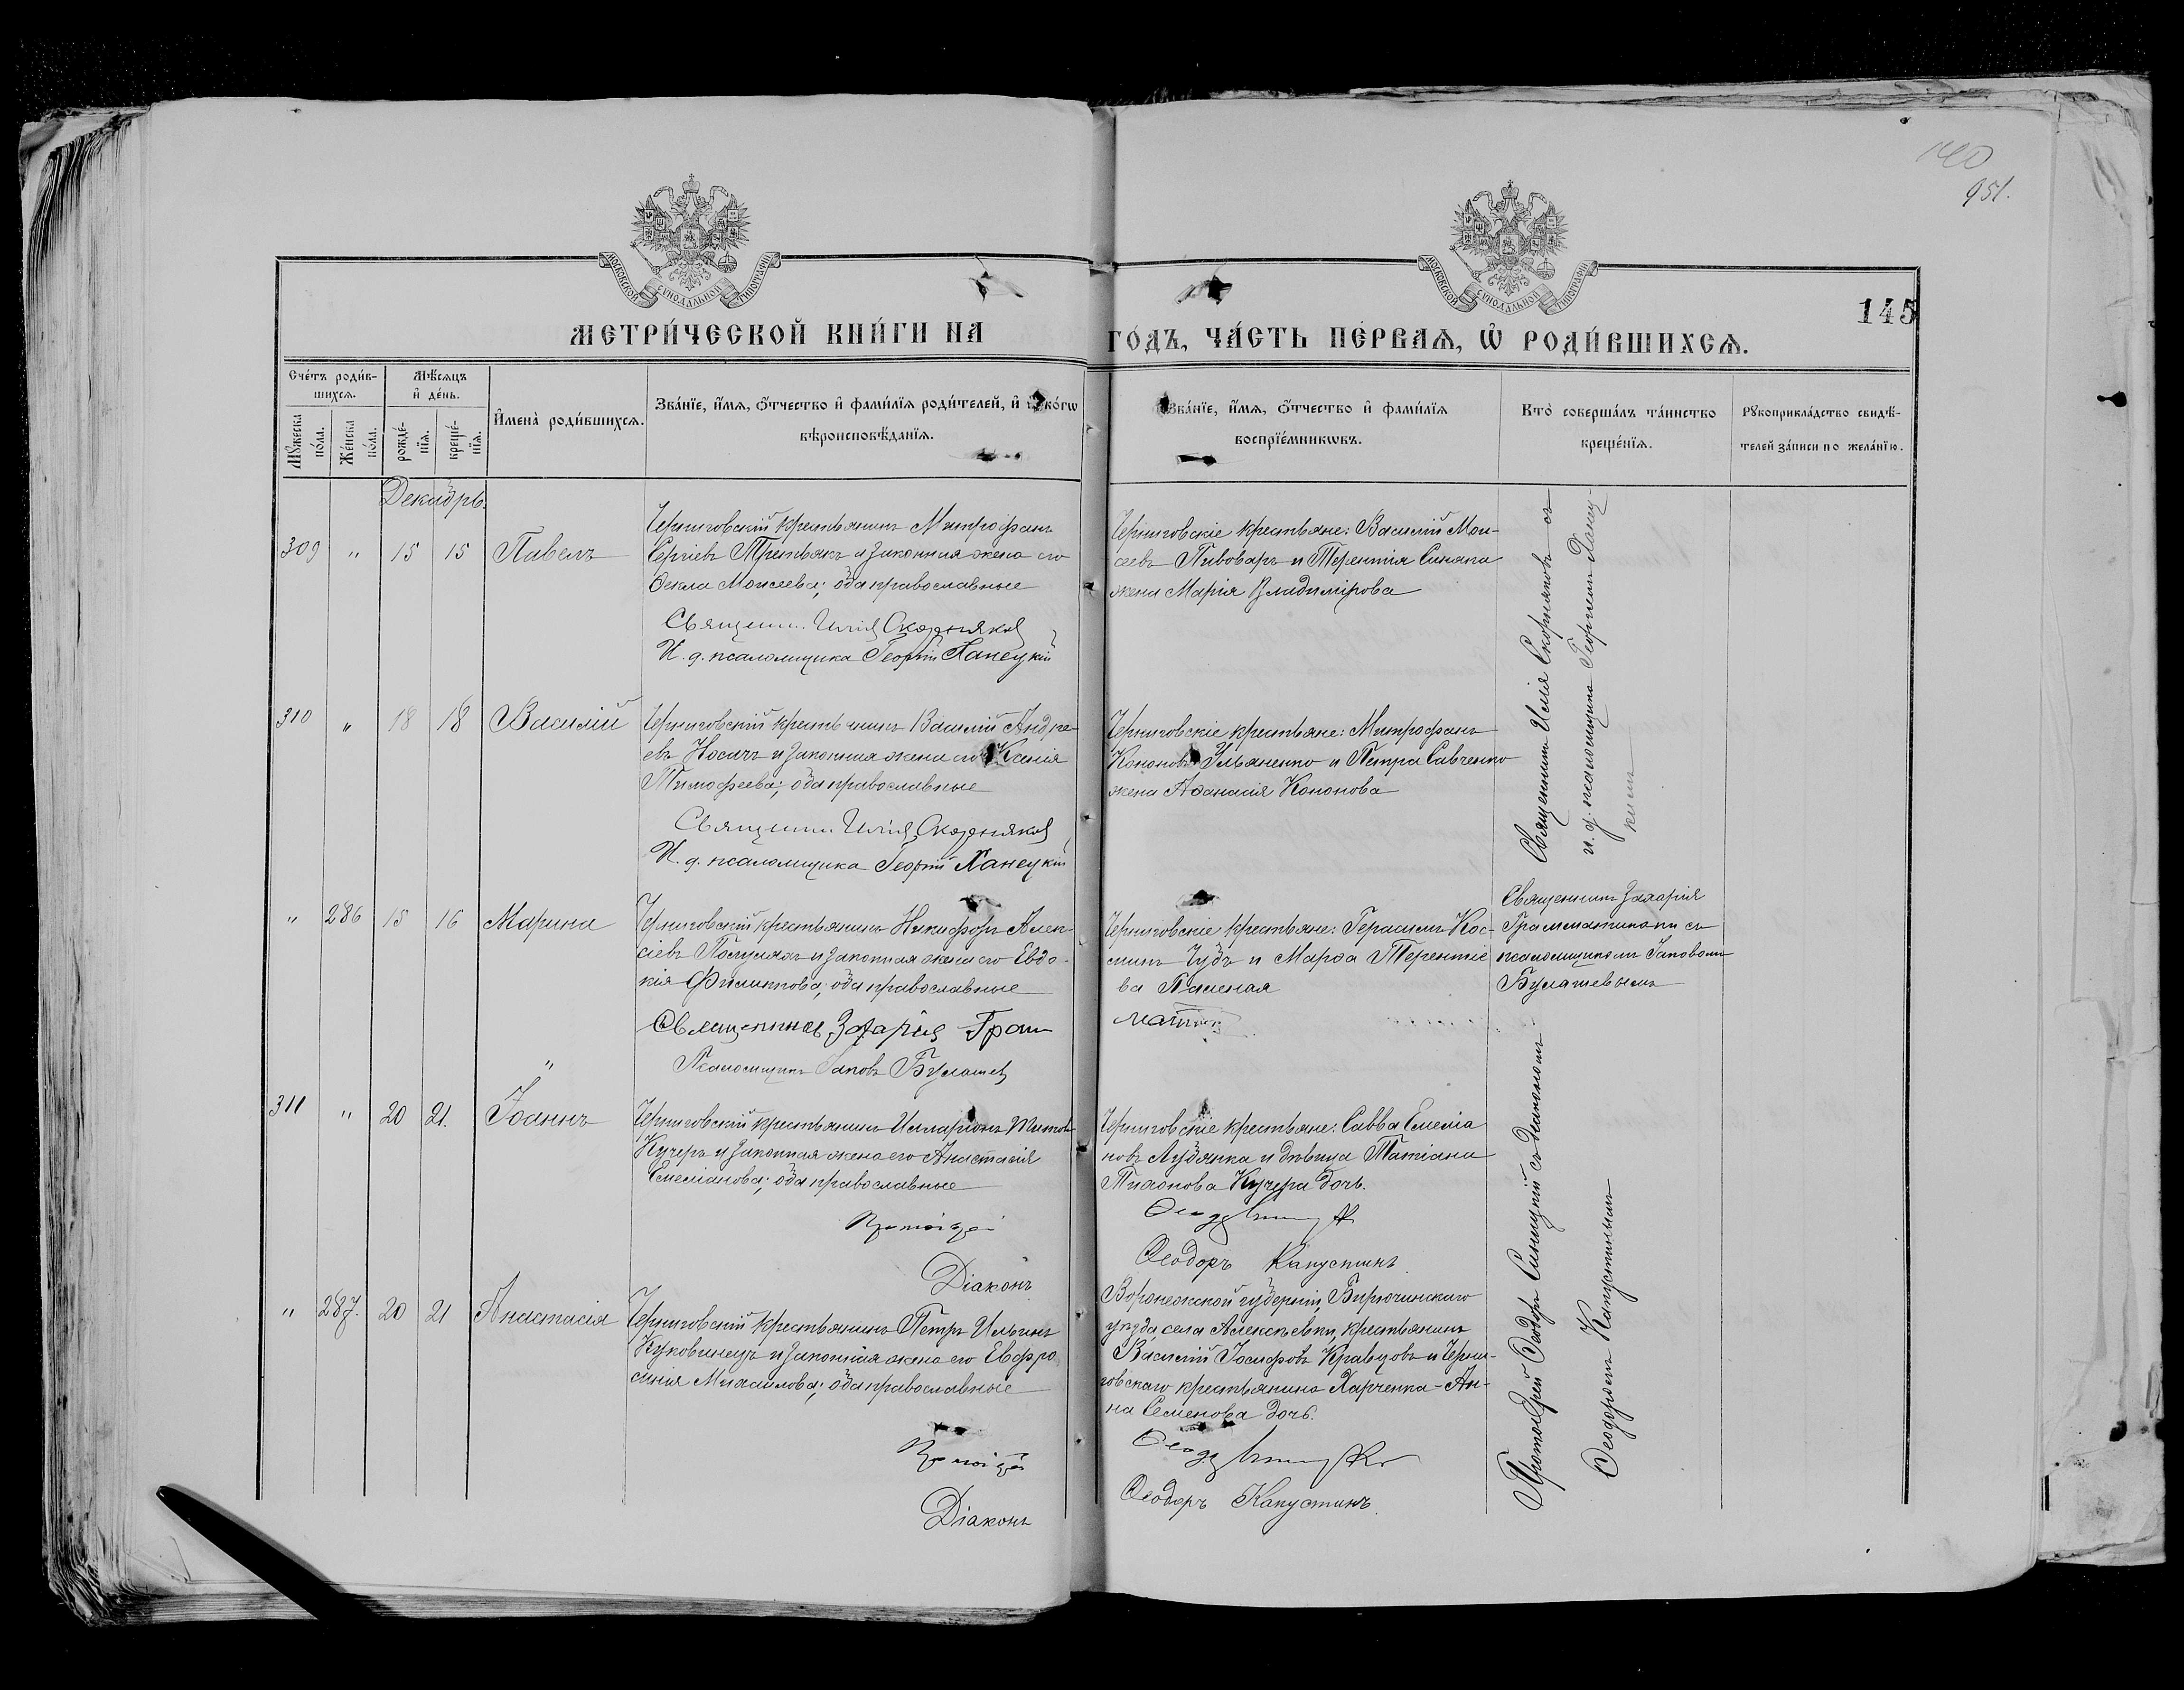 140
951.
МОСКОВСКОЙ СѴНОДАЛЬНОЙ ТИПОГРАФІИ
МОСКОВСКОЙ СѴНОДАЛЬНОЙ ТИПОГРАФІИ
145
МЕТРИ́ЧЕСКОЙ КНИ́ГИ НА
ГО́ДЪ, ЧА́СТЬ ПЕ́РВАѦ, Ѡ҆ РОДИ́ВШИХСѦ.
Сче́тъ роди́в-
шихсѧ.
Мѣ́сѧцъ
и҆ де́нь.
Мꙋ́жеска
по́ла.
Же́нска
по́ла.
рожде́-
нїѧ.
креще́-
нїѧ.
И҆мена̀ роди́вшихсѧ.
Зва́нїе, и҆́мѧ, ѻ҆́тчество и҆ фами́лїѧ роди́телей, и҆ како́гѡ
вѣроисповѣ́данїѧ.
Зва́нїе, и҆́мѧ, ѻ҆́тчество и҆ фами́лїѧ
воспрїе́мникѡвъ.
Кто̀ соверша́лъ та́инство
креще́нїѧ.
Рꙋкоприкла́дство свидѣ́-
телей за́писи по жела́нїю.
Декабрь.
309 " 15 15 Павелъ
Черниговскій крестьянинъ Митрофанъ
Сергіевъ Третьякъ и законная жена его
Ѳекла Моисеева; оба православные
Священн. Илія Скорняков
И. д. псаломщика Георгій Ханецкій
Черниговскіе крестьяне: Василій Мои-
сеевъ Пивоваръ и Терентія Синяка
жена Марія Владимірова
Священникъ Илія Скорняковъ съ
и. д. псаломщика Георгіемъ Ханец-
кимъ
310 " 18 18 Василій
Черниговскій крестьянинъ Василій Андре-
евъ Носачъ и законная жена его Ксенія
Тимофеева; оба православные
Священн. Илія Скорняков
И. д. псаломщика Георгій Ханецкій
Черниговскіе крестьяне: Митрофанъ
Кононовъ Ульяненко и Петра Савченко
жена Аѳанасія Кононова
" 286 15 16 Марина
Черниговскій крестьянинъ Никифоръ Алек-
сіевъ и законная жена его Евдо-
кія Филиппова; оба православные
Священникъ Захарія Грам
матик
Псаломщикъ Іаковъ Булашев
Черниговскіе крестьяне: Герасимъ Кос-
минъ Чубъ и Марѳа Терентіе
ва
Священникъ Захарія
Грамматикати съ
псаломщикомъ Іаковомъ
Булашевымъ
311 " 20 21. Іоаннъ
Черниговскій крестьянинъ Илларіонъ Титовъ
Кучеръ и законная жена его Анастасія
Емеліанова; оба православные
Протоіерей
Діаконъ Ѳеодоръ Капустинъ
Черниговскіе крестьяне: Савва Емеліа
новъ Лубянка и дѣвица Татіана
Тихонова Кучера дочь.
Протоіерей Ѳеодоръ Синицкій съ діакономъ
Ѳеодоромъ Капустинымъ
" 287. 20 21 Анастасія
Черниговскій крестьянинъ Петръ Ильинъ
Куковинецъ и законная жена его Евфро
синія Михаилова; оба православные
Воронежской губерніи, Бирючинскаго
уѣзда, села Алексѣевки, крестьянинъ
Василій Іосифовъ Кравцовъ и Черни-
говскаго крестьянина Харченка - Ан-
на Семенова дочь.
Протоіерей
Діаконъ Ѳеодоръ Капустинъ.